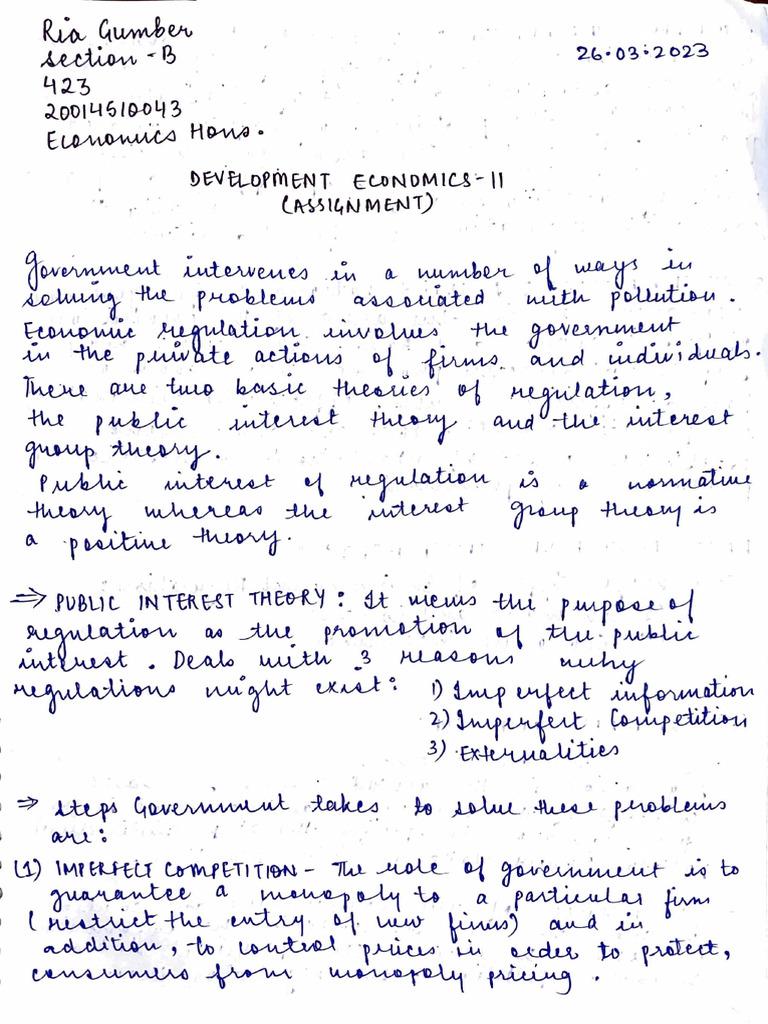 Ria Gumber
Section - B
26.03.2023
423
20014510043
Economics Hons.
DEVELOPMENT ECONOMICS-II
(ASSIGNMENT)
Government intervenes in a number of ways in
solving the problems associated with pollution.
Economic regulation involves the government
in the private actions of firms and individuals.
There are two basic theories of regulation,
the public interest theory and the interest
group theory.
Public interest of regulation is a normative
theory whereas the interest group theory is
a positive theory.
⇒ PUBLIC INTEREST THEORY: It views the purpose of
regulation as the promotion of the public
interest. Deals with 3 reasons why
regulations might exist: 1) Imperfect information
2) Imperfect Competition
3) Externalities
⇒ Steps Government takes to solve these problems
are:
(1) IMPERFECT COMPETITION - The role of government is to
guarantee a monopoly to a particular firm
(restrict the entry of new firms) and in
addition, to control prices in order to protect,
consumers from monopoly pricing.